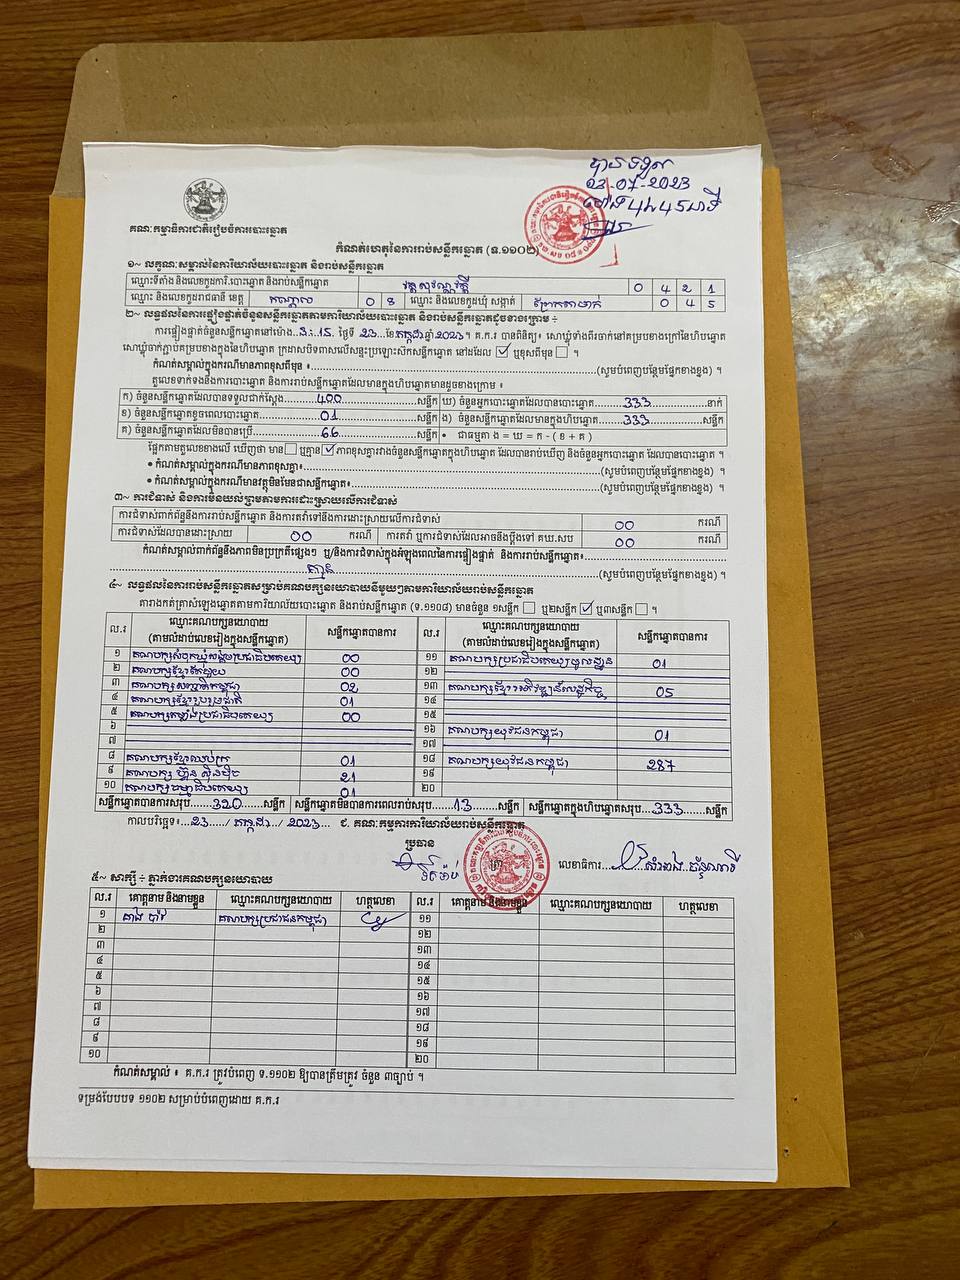 បានទទួល
23-07-2023
គណៈកម្មាធិការជាតិរៀបចំការបោះឆ្នោត
កំណត់ហេតុនៃការរាប់សន្លឹកឆ្នោត (ទ.១១០២)
១~ លក្ខណៈសម្គាល់នៃការិយាល័យបោះឆ្នោត និងរាប់សន្លឹកឆ្នោត
ឈ្មោះទីតាំង និងលេខកូដការិ.បោះឆ្នោត និងរាប់សន្លឹកឆ្នោត វត្តសុវណ្ណវត្តី 0 4 2 1
ឈ្មោះ និងលេខកូដរាជធានី ខេត្ត កណ្តាល 0 8 ឈ្មោះ និងលេខកូដឃុំ សង្កាត់ ព្រែកតាមាក់ 0 4 5
២~ លទ្ធផលនៃការផ្ទៀងផ្ទាត់ចំនួនសន្លឹកឆ្នោតតាមការិយាល័យបោះឆ្នោត និងរាប់សន្លឹកឆ្នោតដូចខាងក្រោម ÷
ការផ្ទៀងផ្ទាត់ចំនួនសន្លឹកឆ្នោតនៅម៉ោង..3:15..ថ្ងៃទី 23..ខែ កក្កដា ឆ្នាំ 2023។ គ.ក.រ បានពិនិត្យ៖ សោឃ្លុំទាំងពីរចាក់នៅគម្របខាងក្រៅនៃហិបឆ្នោត
សោឃ្លុំចាក់ភ្ជាប់គម្របខាងក្នុងនៃហិបឆ្នោត ក្រដាសបិទពាសលើសន្ទះប្រឡោះសិកសន្លឹកឆ្នោត នៅដដែល ☑ ឬខុសពីមុន ☐ ។
កំណត់សម្គាល់ក្នុងករណីមានភាពខុសពីមុន ៖..........(សូមបំពេញបន្ថែមផ្នែកខាងខ្នង) ។
តួលេខទាក់ទងនឹងការបោះឆ្នោត និងការរាប់សន្លឹកឆ្នោតដែលមានក្នុងហិបឆ្នោតមានដូចខាងក្រោម ៖
ក) ចំនួនសន្លឹកឆ្នោតដែលបានទទួលជាក់ស្តែង.....400.....សន្លឹក ឃ) ចំនួនអ្នកបោះឆ្នោតដែលបានបោះឆ្នោត.....333.....នាក់
ខ) ចំនួនសន្លឹកឆ្នោតខូចពេលបោះឆ្នោត.....01.....សន្លឹក ង) ចំនួនសន្លឹកឆ្នោតដែលមានក្នុងហិបឆ្នោត.....333.....សន្លឹក
គ) ចំនួនសន្លឹកឆ្នោតដែលមិនបានប្រើ.....66.....សន្លឹក • ជាធម្មតា ង = ឃ = ក - ( ខ + គ )
ផ្អែកតាមតួលេខខាងលើ ឃើញថា មាន ☐ ឬគ្មាន ☑ ភាពខុសគ្នារវាងចំនួនសន្លឹកឆ្នោតក្នុងហិបឆ្នោត ដែលបានរាប់ឃើញ និងចំនួនអ្នកបោះឆ្នោត ដែលបានបោះឆ្នោត ។
• កំណត់សម្គាល់ក្នុងករណីមានភាពខុសគ្នា៖..........(សូមបំពេញបន្ថែមផ្នែកខាងខ្នង) ។
• កំណត់សម្គាល់ក្នុងករណីមានវត្ថុមិនមែនជាសន្លឹកឆ្នោត៖..........(សូមបំពេញបន្ថែមផ្នែកខាងខ្នង) ។
៣~ ការជំទាស់ និងការមិនយល់ព្រមតាមការដោះស្រាយលើការជំទាស់
ការជំទាស់ពាក់ព័ន្ធនឹងការរាប់សន្លឹកឆ្នោត និងការតវ៉ាទៅនឹងការដោះស្រាយលើការជំទាស់ 00 ករណី
ការជំទាស់ដែលបានដោះស្រាយ 00 ករណី ការតវ៉ា ឬការជំទាស់ដែលអាចនឹងប្តឹងទៅ គឃ.សប 00 ករណី
កំណត់សម្គាល់ពាក់ព័ន្ធនឹងភាពមិនប្រក្រតីផ្សេងៗ ឬ/និងការជំទាស់ក្នុងអំឡុងពេលនៃការផ្ទៀងផ្ទាត់ និងការរាប់សន្លឹកឆ្នោត៖..........
គ្មាន..........(សូមបំពេញបន្ថែមផ្នែកខាងខ្នង) ។
៤~ លទ្ធផលនៃការរាប់សន្លឹកឆ្នោតសម្រាប់គណបក្សនយោបាយនីមួយៗតាមការិយាល័យរាប់សន្លឹកឆ្នោត
តារាងកត់ត្រាសំឡេងឆ្នោតតាមការិយាល័យបោះឆ្នោត និងរាប់សន្លឹកឆ្នោត (ទ.១១០៨) មានចំនួន ១សន្លឹក ☐ ឬ២សន្លឹក ☑ ឬ៣សន្លឹក ☐ ។
ល.រ ឈ្មោះគណបក្សនយោបាយ (តាមលំដាប់លេខរៀងក្នុងសន្លឹកឆ្នោត) សន្លឹកឆ្នោតបានការ ល.រ ឈ្មោះគណបក្សនយោបាយ (តាមលំដាប់លេខរៀងក្នុងសន្លឹកឆ្នោត) សន្លឹកឆ្នោតបានការ
១ គណបក្សសំបុកឃ្មុំសង្គមប្រជាធិបតេយ្យ 00 ១១ គណបក្សប្រជាធិបតេយ្យមូលដ្ឋាន 01
២ គណបក្សខ្មែរតែមួយ 00 ១២
៣ គណបក្សសញ្ជាតិកម្ពុជា 02 ១៣ គណបក្សខ្មែរអភិវឌ្ឍន៍សេដ្ឋកិច្ច 05
៤ គណបក្សខ្មែររួបរួមជាតិ 01 ១៤
៥ គណបក្សកម្លាំងប្រជាធិបតេយ្យ 00 ១៥
៦ ១៦ គណបក្សយុវជនកម្ពុជា 01
៧ ១៧
៨ គណបក្សខ្មែរឈប់ក្រ 01 ១៨ គណបក្សយុវជនកម្ពុជា 287
៩ គណបក្ស ហ៊្វុន ស៊ិនប៉ិច 21 ១៩
១០ គណបក្សធម្មាធិបតេយ្យ 01 ២០
សន្លឹកឆ្នោតបានការសរុប.....320.....សន្លឹក សន្លឹកឆ្នោតមិនបានការពេលរាប់សរុប.....13.....សន្លឹក សន្លឹកឆ្នោតក្នុងហិបឆ្នោតសរុប.....333.....សន្លឹក
កាលបរិច្ឆេទ៖...23...../ កក្កដា / 2023... ជ. គណៈកម្មការការិយាល័យរាប់សន្លឹកឆ្នោត
ប្រធាន
ត្រា លេខាធិការ
៥~ សាក្សី ÷ ភ្នាក់ងារគណបក្សនយោបាយ
ល.រ គោត្តនាម និងនាមខ្លួន ឈ្មោះគណបក្សនយោបាយ ហត្ថលេខា ល.រ គោត្តនាម និងនាមខ្លួន ឈ្មោះគណបក្សនយោបាយ ហត្ថលេខា
១ គណបក្សប្រជាជនកម្ពុជា ១១
២ ១២
៣ ១៣
៤ ១៤
៥ ១៥
៦ ១៦
៧ ១៧
៨ ១៨
៩ ១៩
១០ ២០
កំណត់សម្គាល់ ៖ គ.ក.រ ត្រូវបំពេញ ទ.១១០២ ឱ្យបានត្រឹមត្រូវ ចំនួន ៣ច្បាប់ ។
ទម្រង់បែបបទ ១១០២ សម្រាប់បំពេញដោយ គ.ក.រ